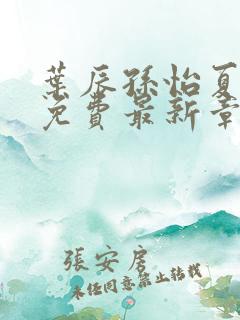 葉辰孫怡夏
免費最新章
張安居
未經同意禁止轉載